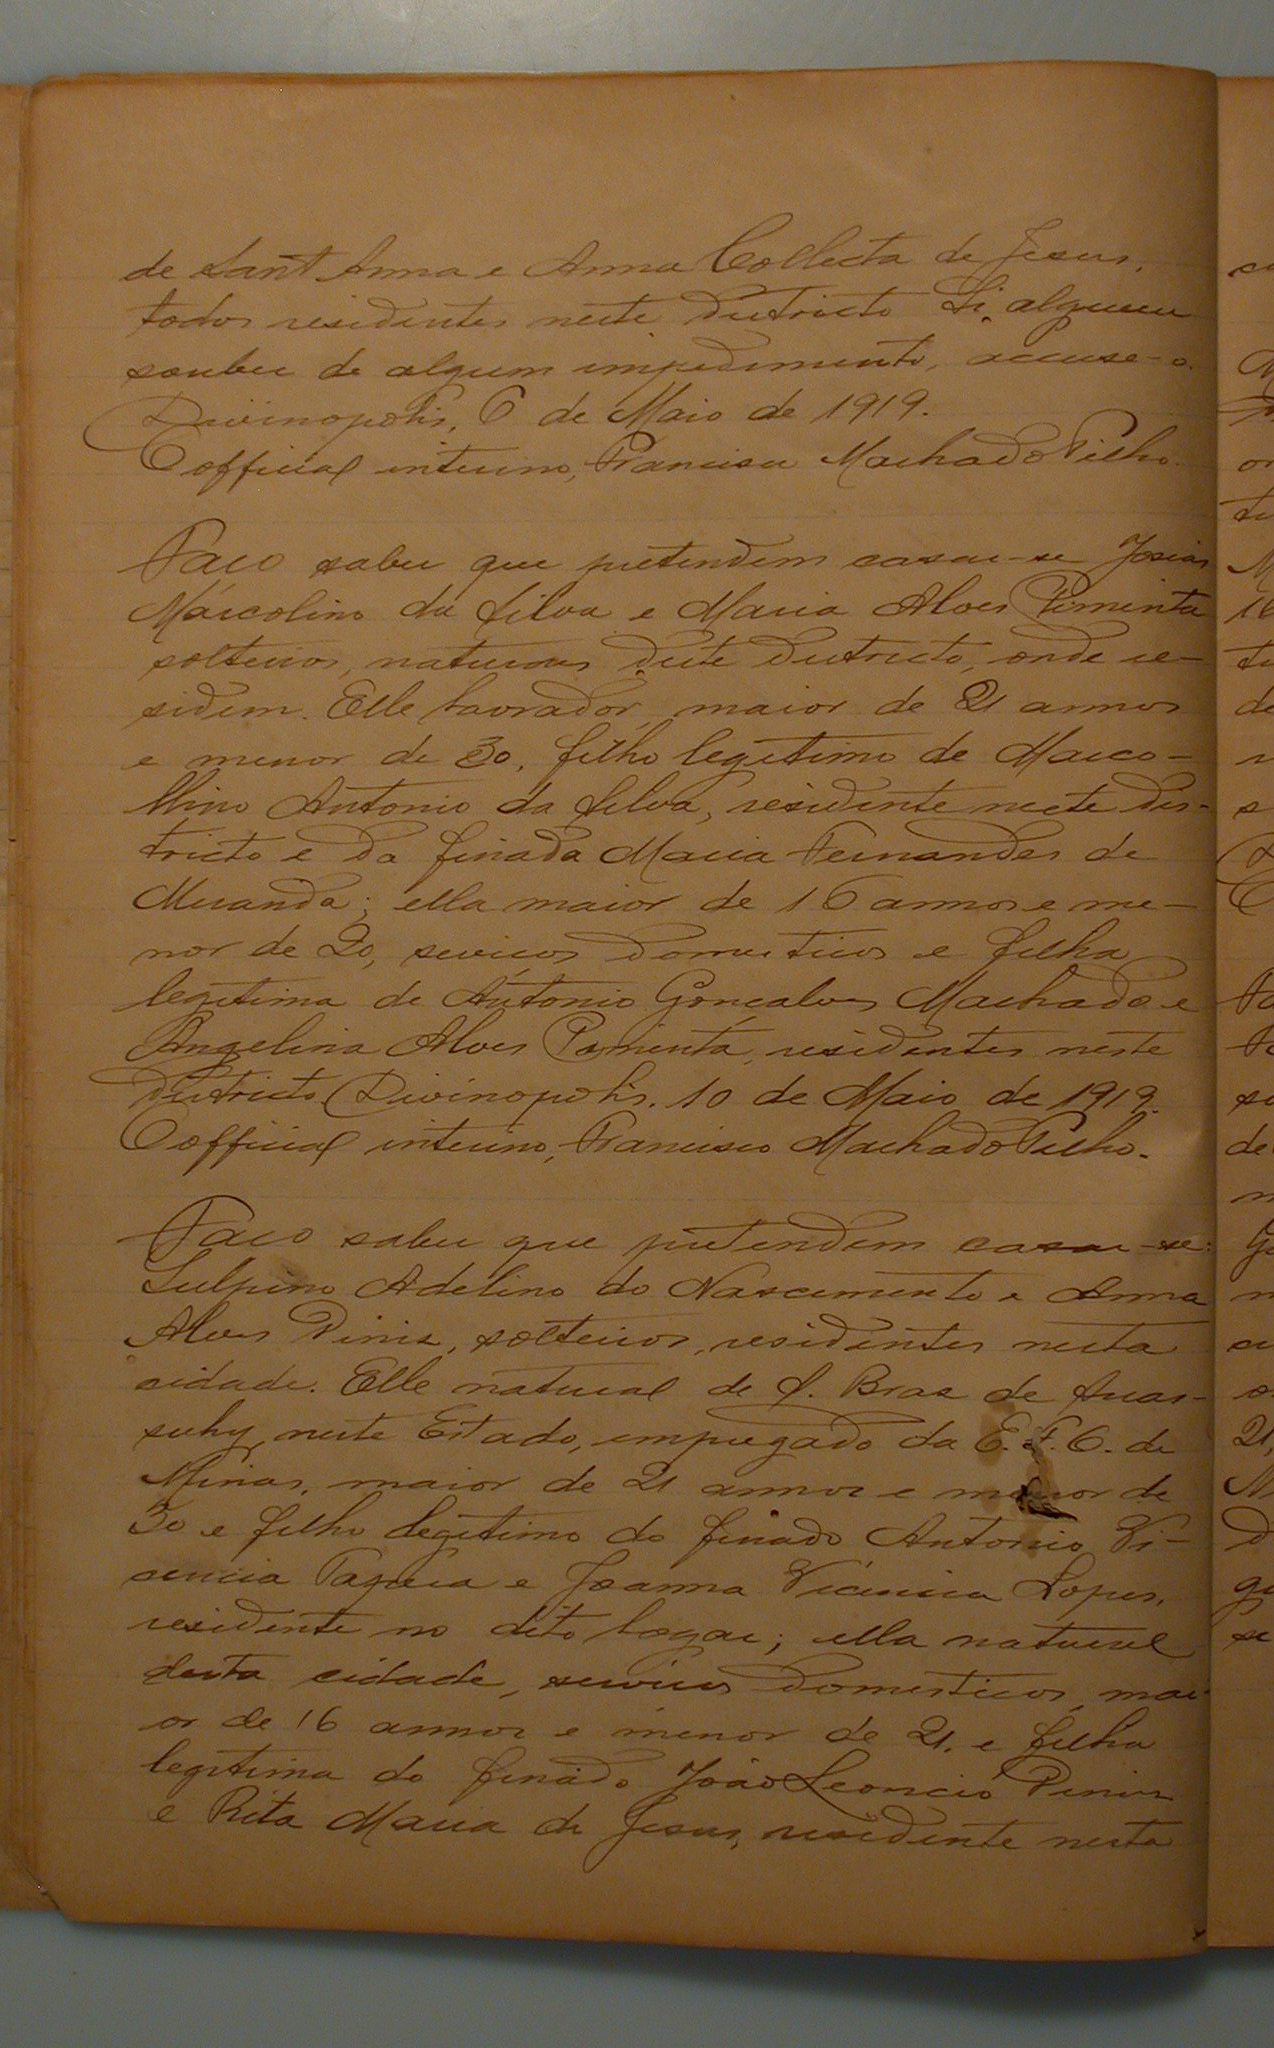 de Sant Anna e Anna Collecta de Jesus,
todos residentes neste districto Si alguem
souber de algum impedimento, accuse-o.
Divinopolis, 6 de Maio de 1919.
O official interino, Francisco Machado Filho.
Faço saber que pretendem casar-se Josias
Marcolino da Silva e Maria Alves Pimenta
solteiros, naturaes deste districto, onde re-
sidem. Elle lavrador, maior de 21 annos
e menor de 30, filho legitimo de Marco-
llino Antonio da Silva, residente neste dis-
tricto e da finada Maria Fernandes de
Miranda; ella maior de 16 annos e me-
nor de 20, serviços domesticos e filha
legitima de Antonio Gonçalves Machado e
Angelina Alves Pimenta, residentes neste
districto. Divinopolis, 10 de Maio de 1919.
O official interino, Francisco Machado Filho.
Faço saber que pretendem casar-se:
Sulpino Adelino do Nascimento e Anna
Alves Diniz, solteiros, residentes nesta
cidade. Elle natural de S. Braz de Suas-
suhy, neste Estado, empregado da E. F. O. de
Minas, maior de 21 annos e menor de
30 e filho legitimo do finado Antonio Vi-
cencia e Joanna Vicencia Lopes,
residente no dito logar; ella natural
desta cidade, serviços domesticos, mai-
or de 16 annos e menor de 21. e filha
legitima do finado João Leoncio Diniz
e Rita Maria de Jesus, residente nesta